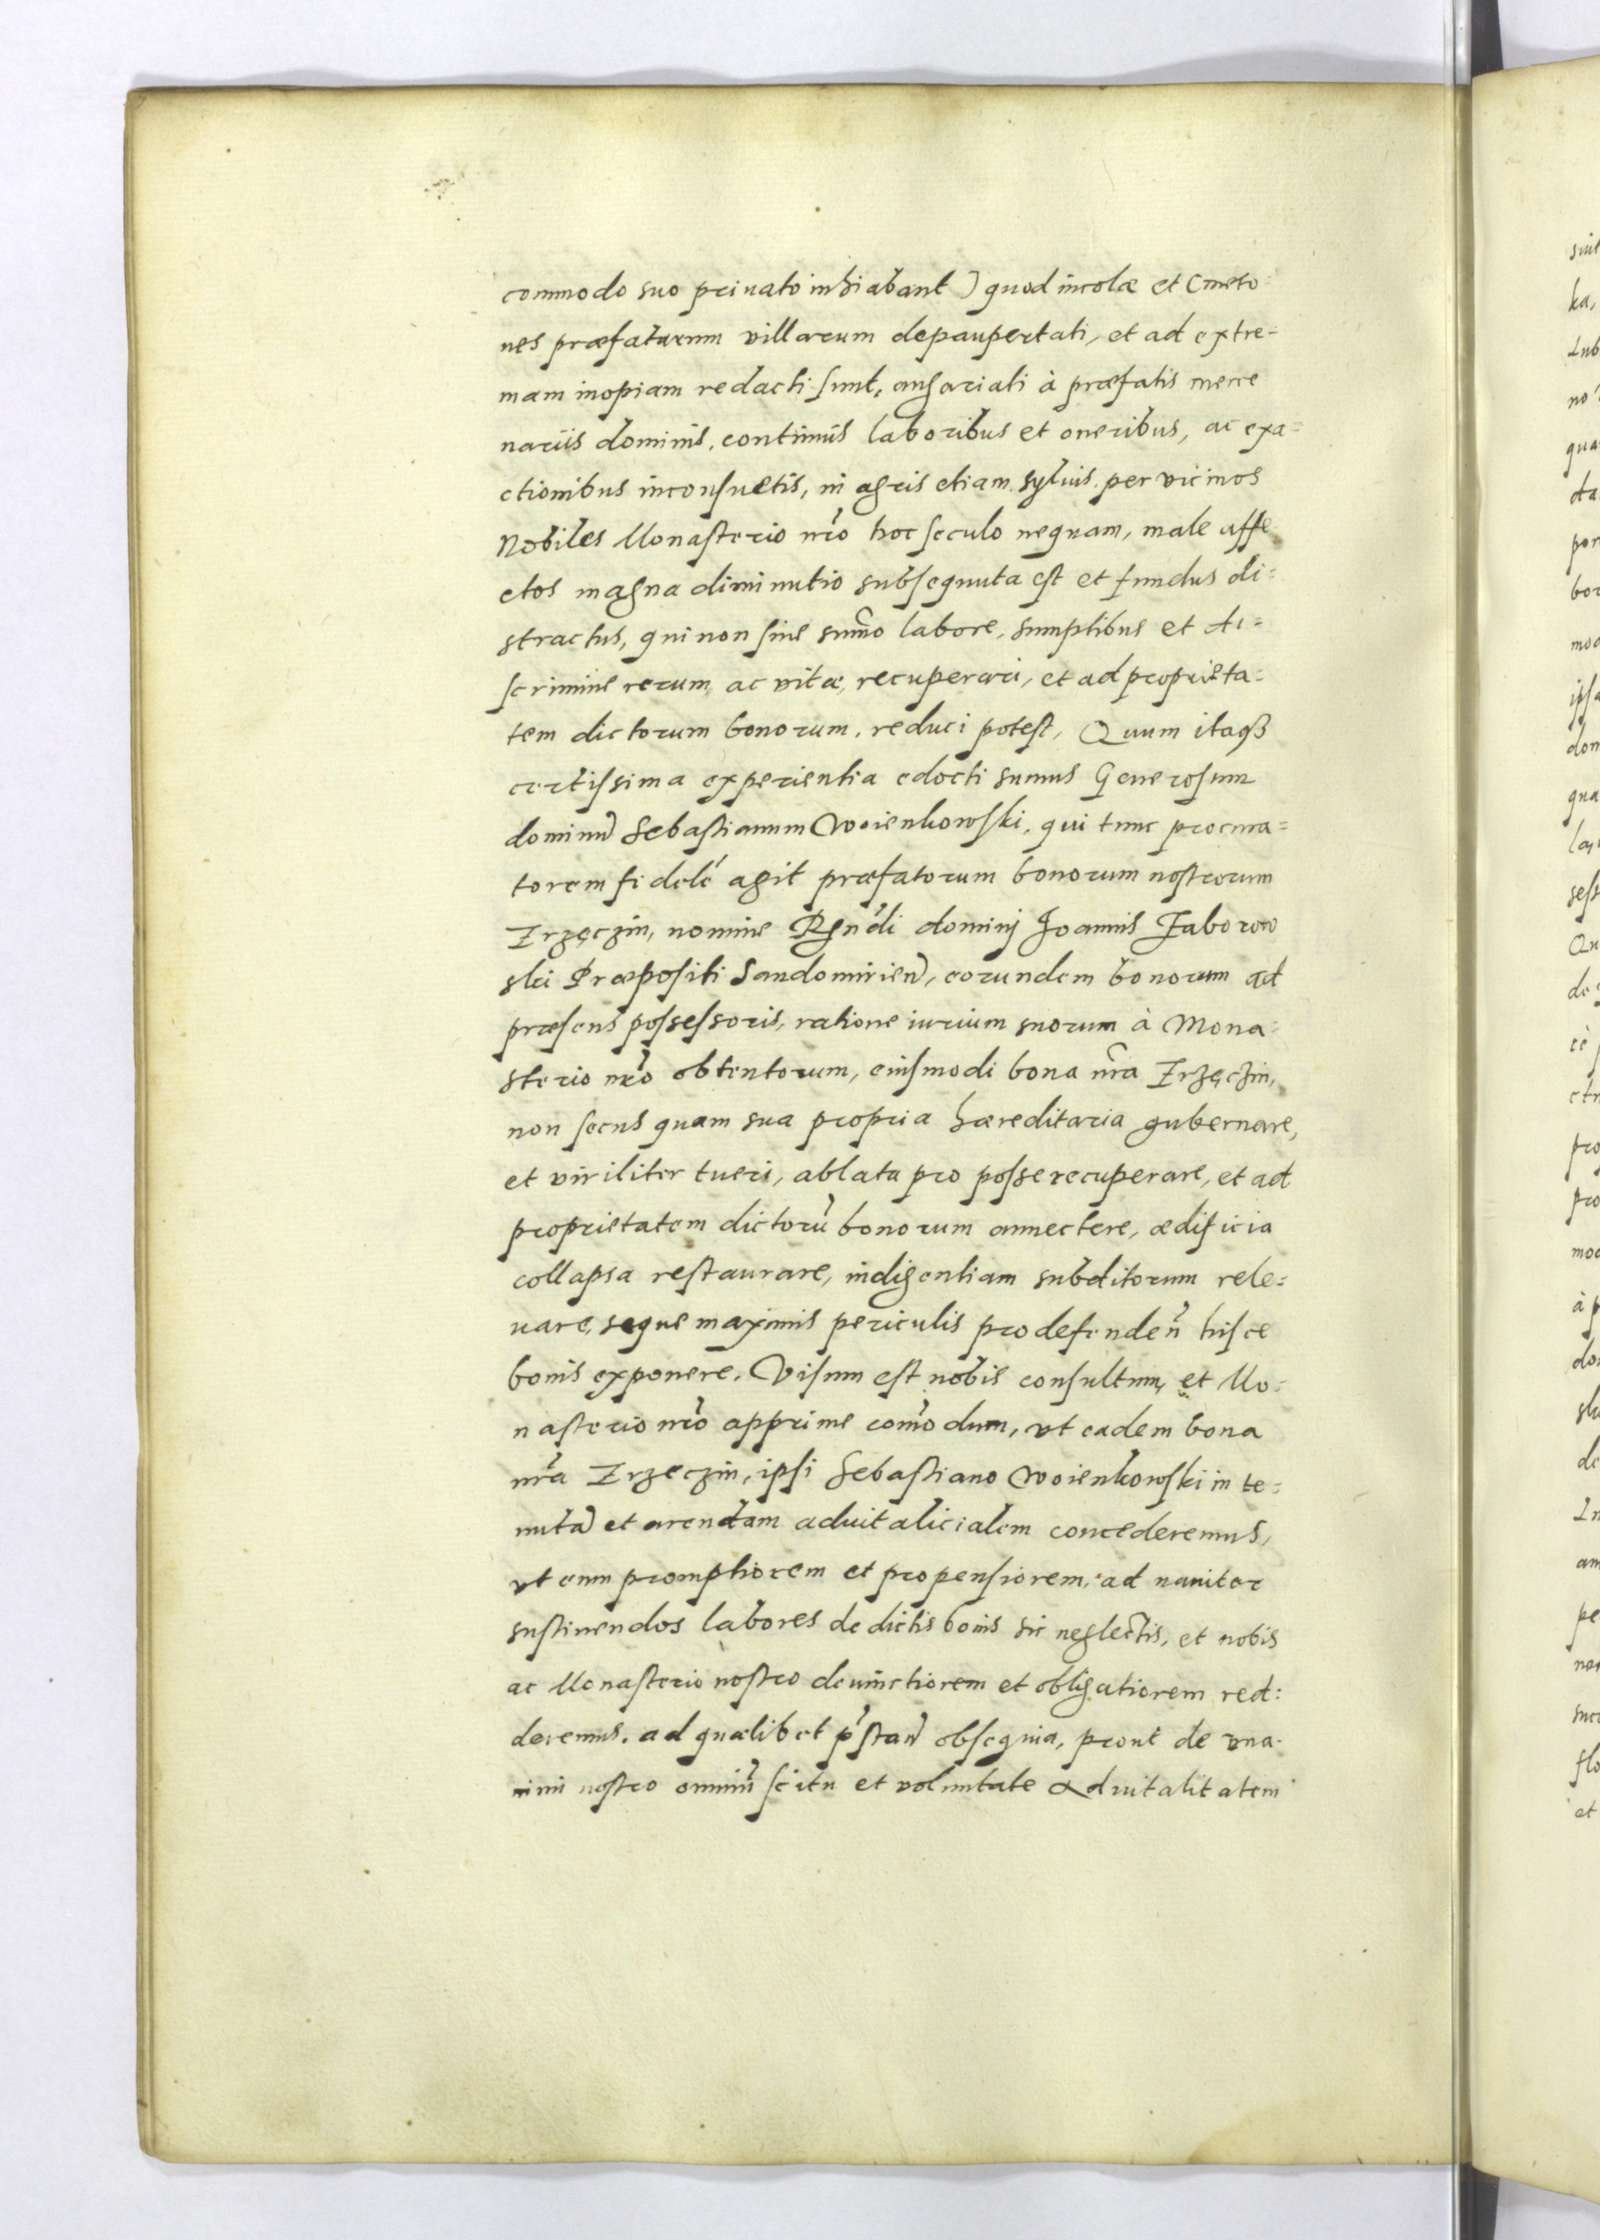 commodo suo priuato inhiabant) quod incolæ et Cmeto-
nes præfatarum villarum depaupertati, et ad extre=
mam inopiam redacti sunt, angariati à præfatis merce
nariis dominis, continuis laboribus et oneribus, ac exa=
ctionibus inconsuetis, in agris etiam syluis per vicinos
Nobiles Monasterio nr̃o hoc seculo nequam, male affe
ctos magna diminutio subsequuta est et fundus di=
stractus, qui non sine sum̃o labore, sumptibus et di=
scrimine rerum, ac vitæ, recuperari, et ad proprieta=
tem dictorum bonorum, reduci potest, Quum itaqꝫ
certissima experientia edocti sumus Generosum
dominũ Sebastianum Woienkowski, qui tunc procura=
torem fidelẽ agit præfatorum bonorum nostrorum
Trzęczin, nomine Rgñdi dominij Joannis Jaborow
ski Præpositi Sandomirieñ, eorundem bonorum ad
præsens possessoris, ratione iurium suorum à Mona=
sterio nr̃o obtentorum, eiusmodi bona nr̃a Trzęczin,
non secus quam sua propria hæreditaria gubernare,
et viriliter tueri, ablata pro posse recuperare, et ad
proprietatem dictorũ bonorum annectere, ædificia
collapsa restaurare, indigentiam subditorum rele=
uare, seque maximis periculis pro defendeñ hisce
bonis exponere. Visum est nobis consultum, et Mo=
nasterio nr̃o apprime com̃odum, vt eadem bona
nr̃a Trzeczin, ipsi Sebastiano Woienkowski in te=
nutã et arendam aduitalicialem concederemus,
vt eum promptiorem et propensiorem, ad nauiter
sustinendos labores de dictis bonis sic neglectis, et nobis
ac Monasterio nostro deuinctiorem et obligatiorem red=
deremus, ad quælibet p̃stañ obsequia, prout de vna-
nimi nostro omniũ scitu et voluntate Aduitalitatem